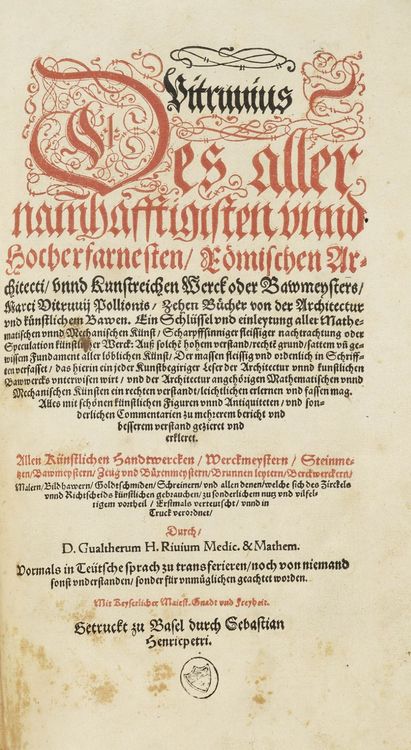 Vitruuius
Des aller
namhafftigisten vnnd
Hocherfarnesten/ Römischen Ar-
chitecti/ vnnd Kunstreichen Werck oder Bawmeysters/
Marci Vitruuij Pollionis/ Zehen Bücher von der Architectur
vnd künstlichem Bawen. Ein Schlüssel vnd einleytung aller Mathe-
matischen vnnd Mechanischen Künst/ Scharpffsinniger fleissiger nachtrachtung oder
Speculation künstlicher Werck: Auß solchē hohem verstand/rechtē grund/sattem vñ ge-
wissem Fundament aller löblichen Künst/ Der massen fleissig vnd ordenlich in Schriff-
ten verfasset/ das hierin ein jeder Kunstbegiriger Leser der Architectur vnnd künstlichen
Bawwercks vnterwisen wirt/ vnd der Architectur angehörigen Mathematischen vnnd
Mechanischen Künsten ein rechten verstandt/leichtlichen erlernen vnd fassen mag.
Alles mit schönen künstlichen Figuren vnnd Antiquiteten/ vnd son-
derlichen Commentarien zu mehrerem bericht vnd
besserem verstand gezieret vnd
erkleret.
Allen Künstlichen Handtwercken/ Werckmeystern/ Steinme-
tzen/Bawmeystern/ Zeug vnd Büxenmeystern/Brunnen leytern/Berckwerckern/
Malern/Bildhawern/Goldschmiden/Schreinern/ vnd allen denen/welche sich des Zirckels
vnnd Richtscheids künstlichen gebrauchen/ zu sonderlichem nutz vnd vilfel-
tigem vortheil/ Erstmals verteutscht/ vnnd in
Truck verordnet/
Durch/
D. Gualtherum H. Riuium Medic. & Mathem.
Vormals in Teütsche sprach zu transferieren/noch von niemand
sonst vnderstanden/ sonder für vnmüglichen geachtet worden.
Mit Keyserlicher Maiest. Gnadt vnd Freyheit.
Getruckt zu Basel durch Sebastian
Henricpetri.